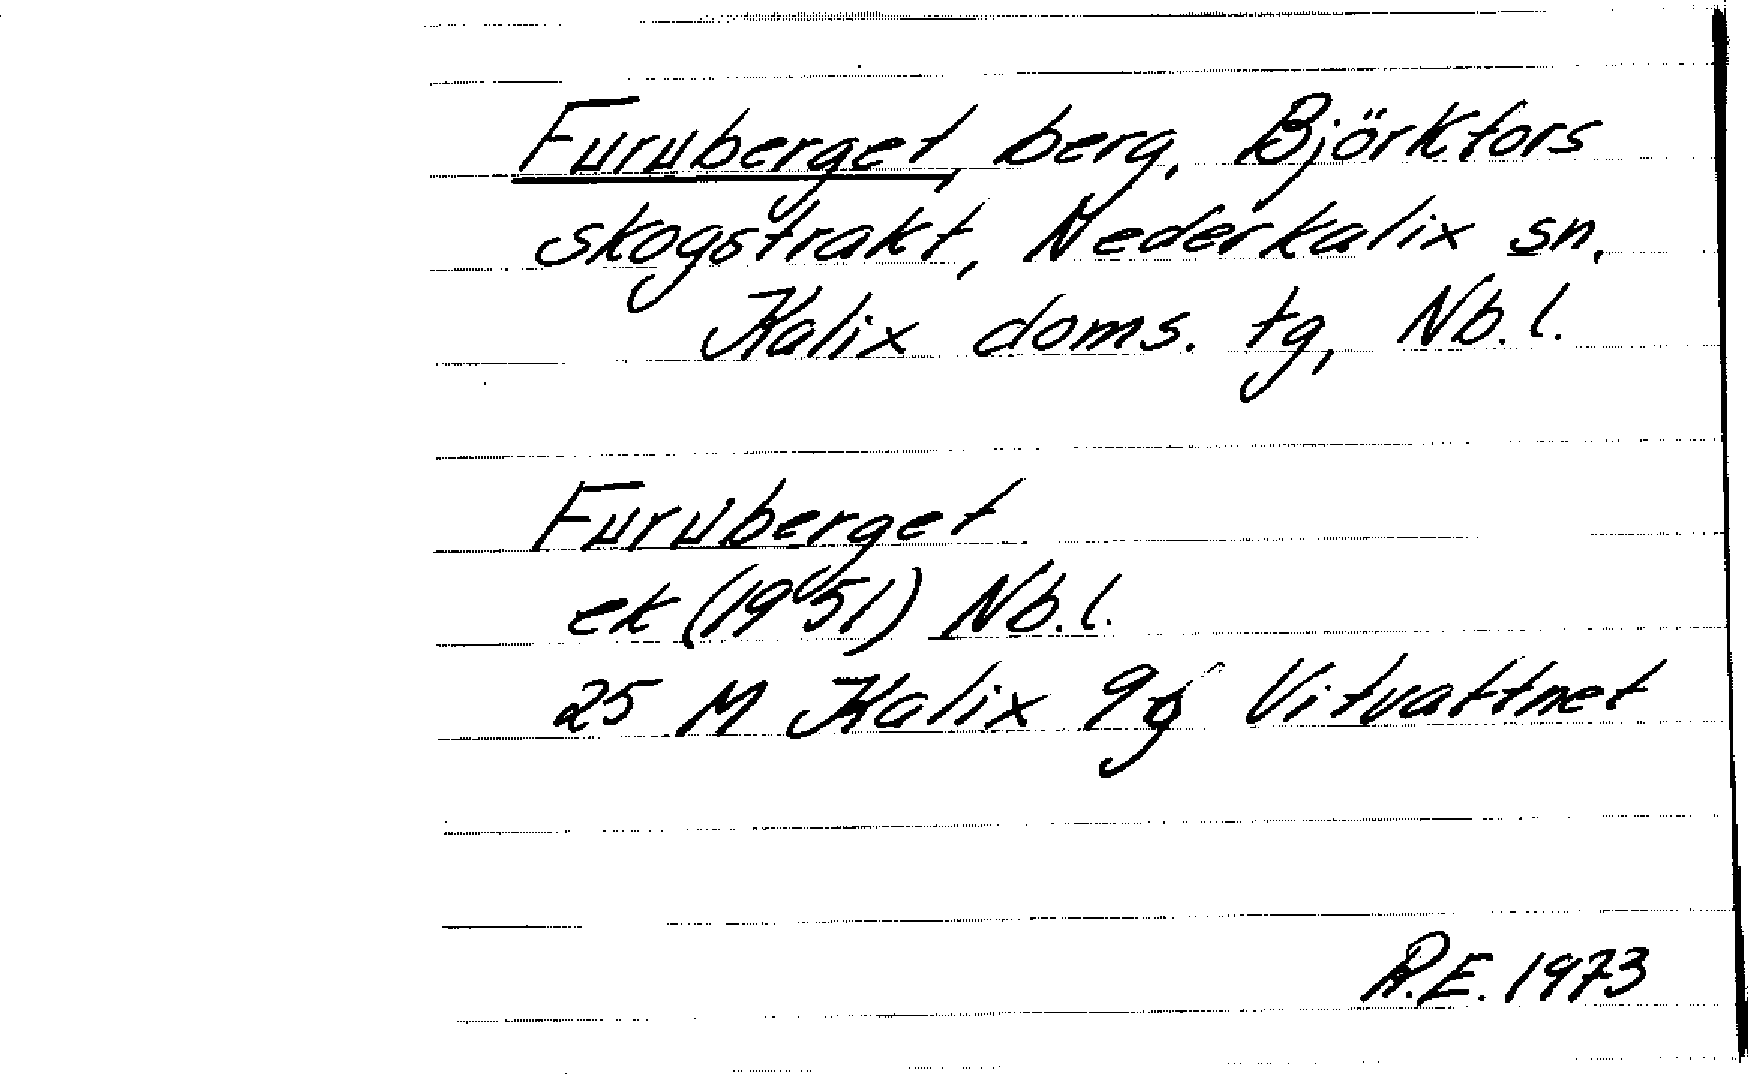 Furuberget, berg, Björkfors
skogstrakt, Nederkalix sn,
Kalix doms. tg, Nb. l.
Furuberget
ek (1951) Nb. l.
25 M Kalix 9j Vitvattnet
R.E. 1973